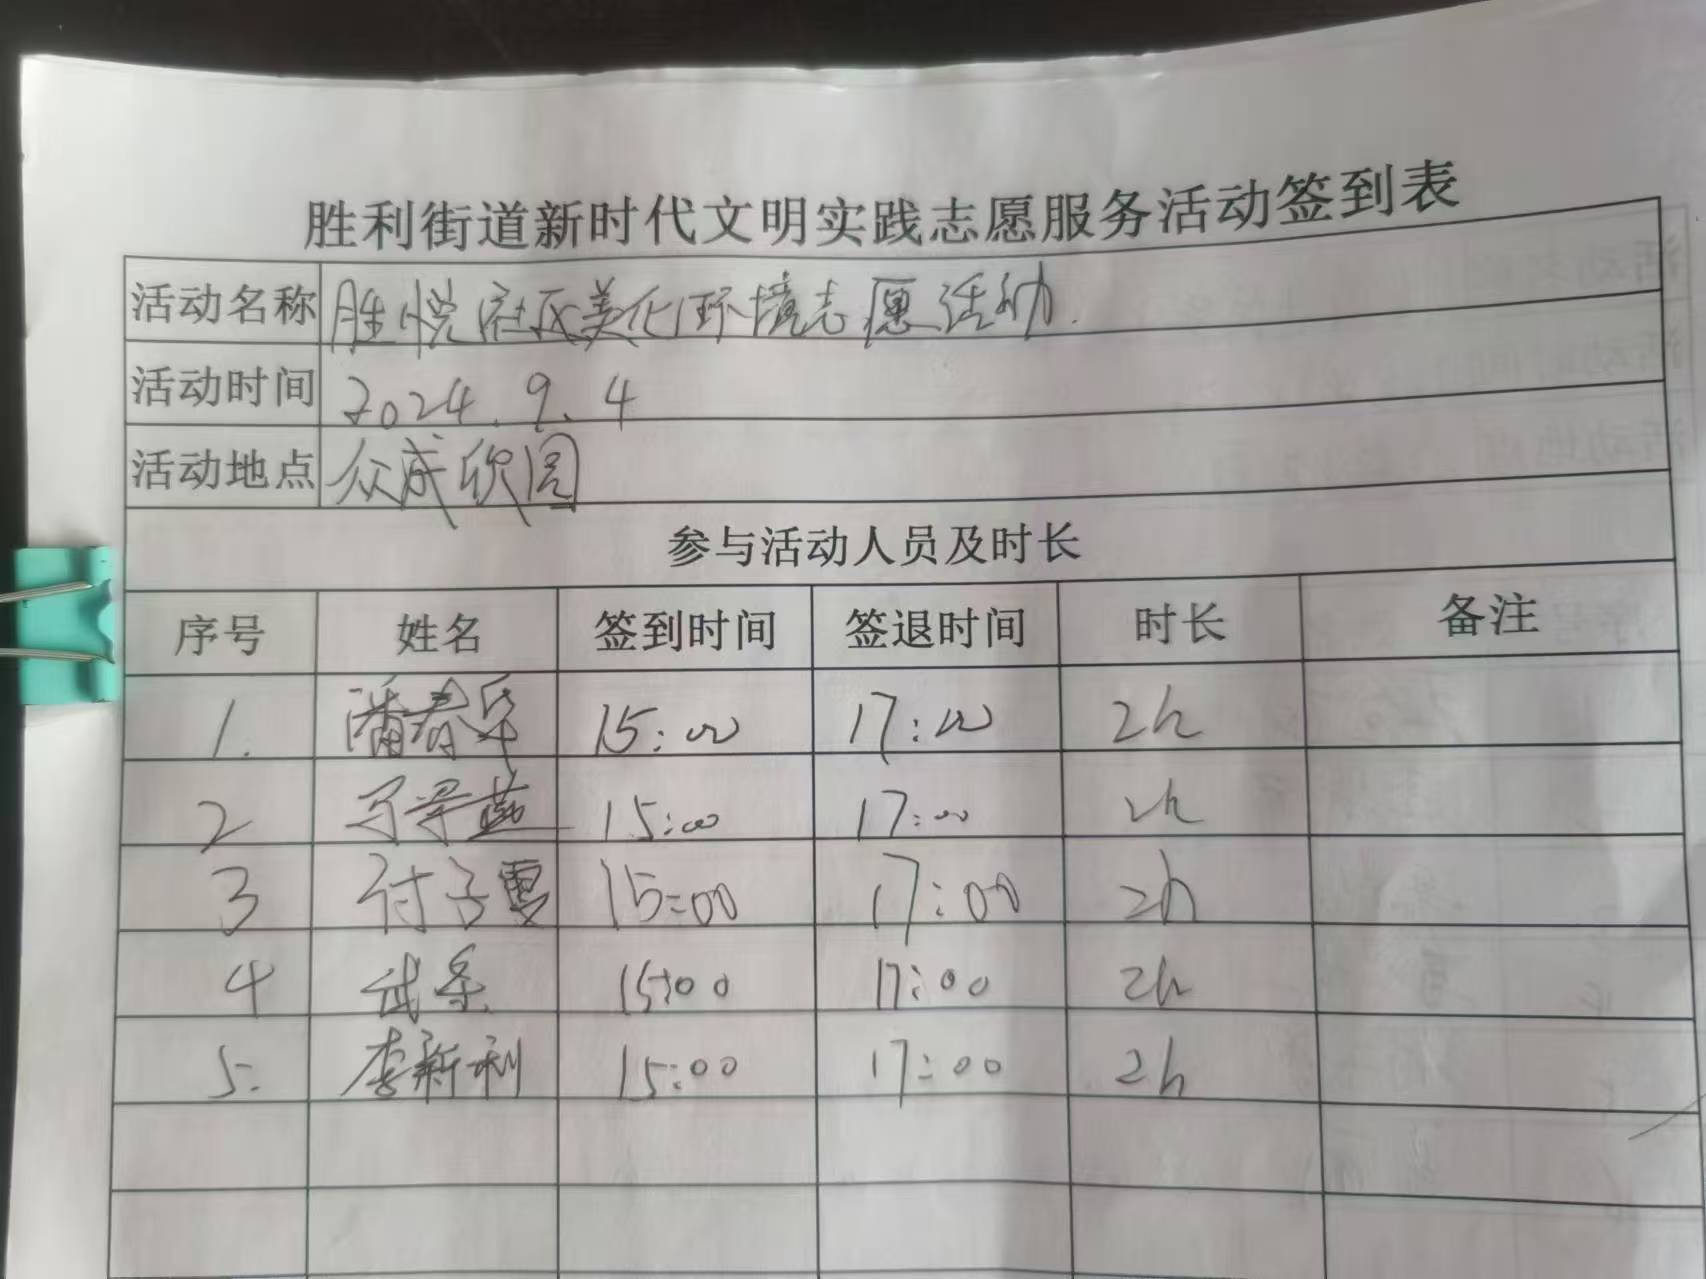 胜利街道新时代文明实践志愿服务活动签到表
活动名称 胜悦社区美化环境志愿活动.
活动时间 2024.9.4
活动地点 众成欣园
参与活动人员及时长
序号 姓名 签到时间 签退时间 时长 备注
1. 潘春华 15:00 17:00 2h
2 15:00 17:00 2h
3 付子雯 15:00 17:00 2h
4 15:00 17:00 2h
5. 李新利 15:00 17:00 2h